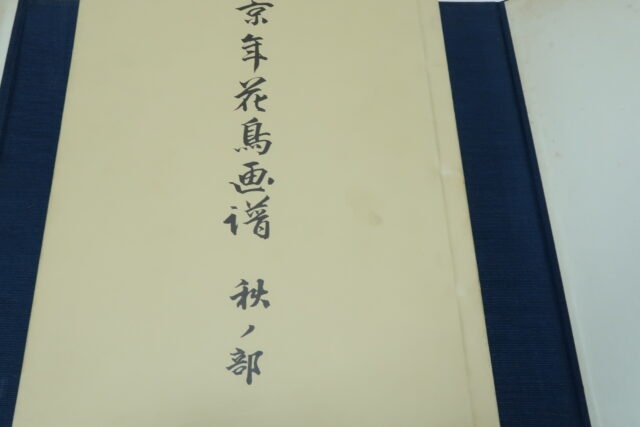 京年花鳥画譜 秋ノ部